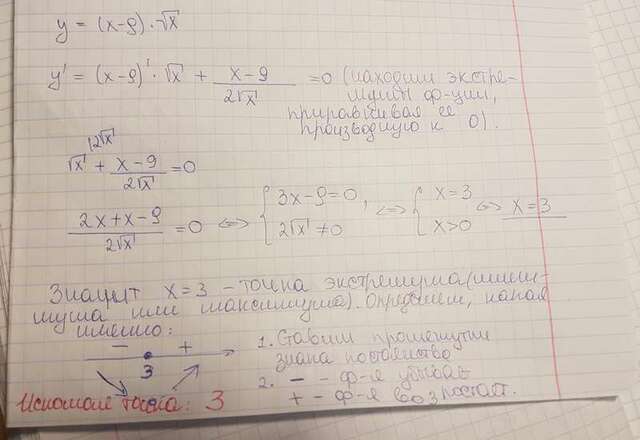 y = (x-9)·√x
y' = (x-9)'·√x + (x-9)/(2√x) = 0 (находим экстре-
мумы ф-ции,
приравнивая её
производную к 0).
√x^(12√x) + (x-9)/(2√x) = 0
(2x+x-9)/(2√x) = 0 <=> { 3x-9=0, 2√x ≠ 0 <=> { x=3 x>0 <=> x=3
Значит x=3 – точка экстремума (мини-
мума или максимума). Определим, какая
именно:
− + 1. Ставим промежутки
3 знака постоянство
2. − - ф-я убывает
+ - ф-я возрастает.
Искомая точка: 3